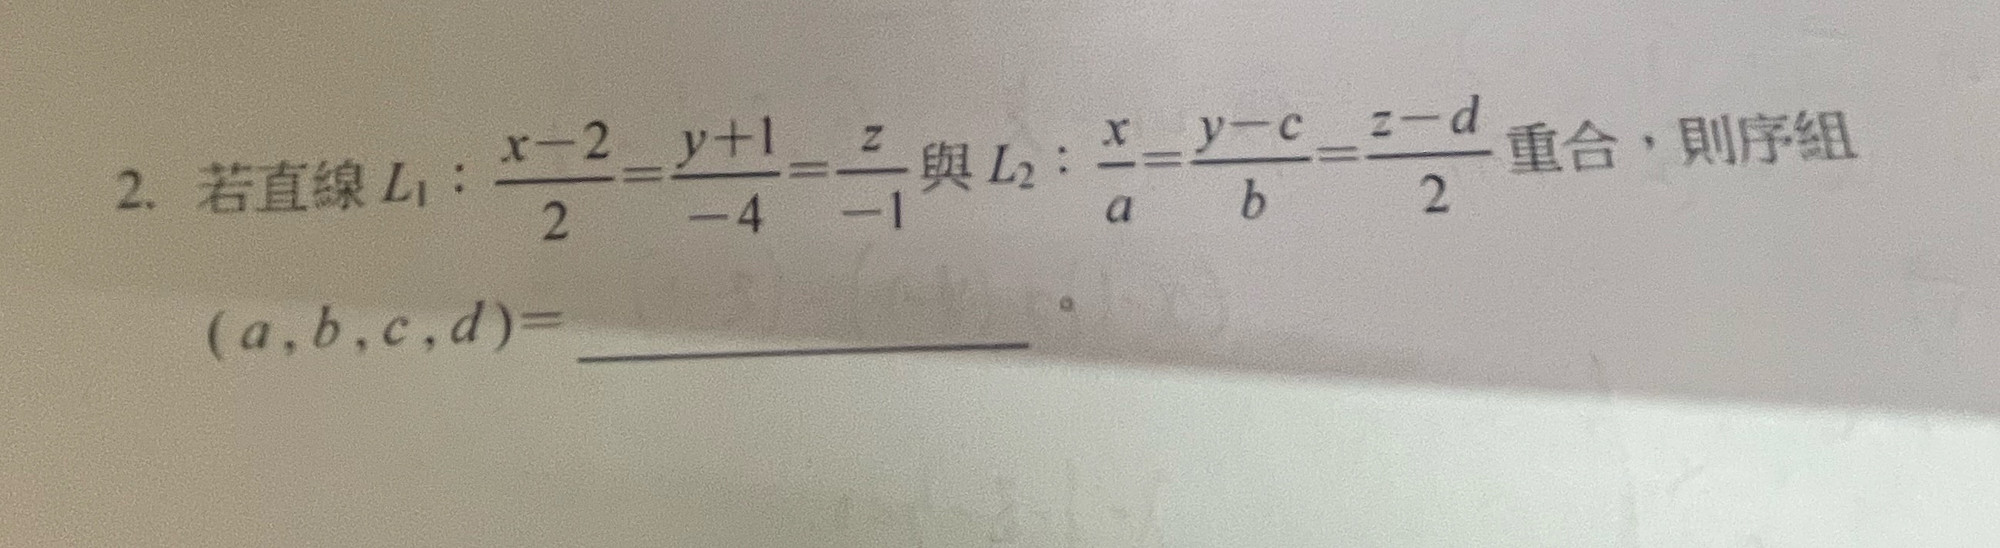 2. 若直線 L₁：(x−2)/2=(y+1)/−4=z/−1 與 L₂：x/a=(y−c)/b=(z−d)/2 重合，則序組
(a,b,c,d)=＿＿＿＿＿＿。